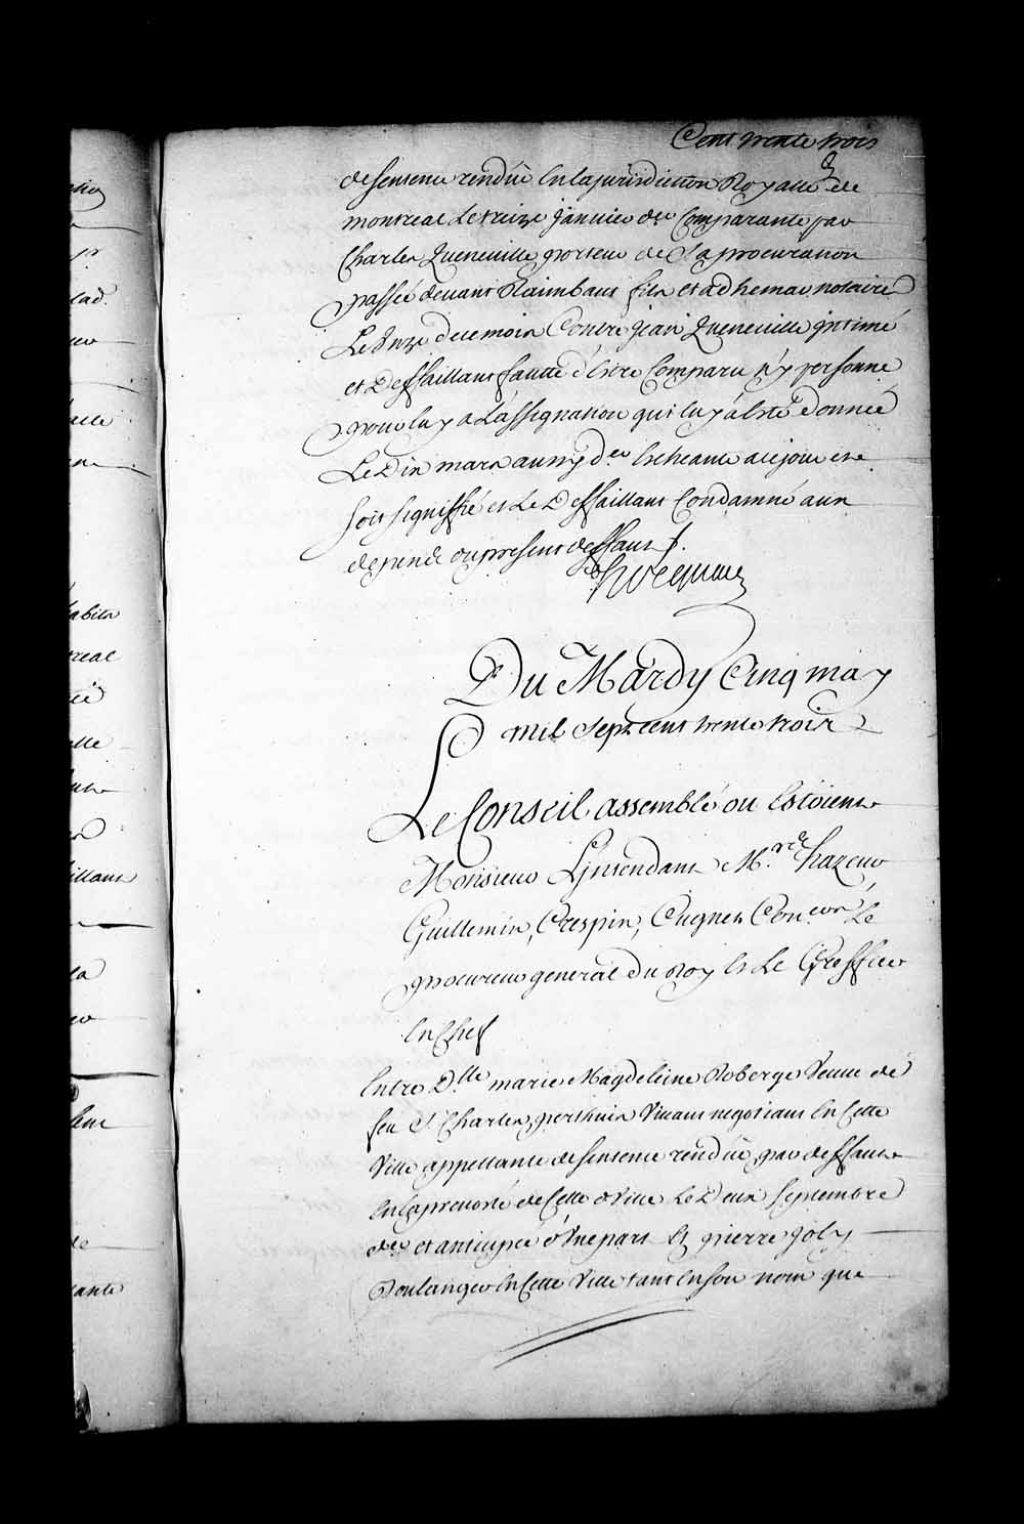 Cent trente trois
de sentence rendüe En la jurisdiction Royalle de
montreal Le treize janvier der Comparante par
Charles Queneuille porteur de Sa procuration
passée devant Raimbaut fils et adhemar notaires
Le Onze de ce mois Contre Jean Queneuille jntimé
et Deffaillant faute d'Estre Comparu n'y personne
pour luy a L'assignation qui luy a Esté donnée
Le Dix mars aussy der Escheante a ce jour et
soit signiffié et Le Deffaillant Condamné aux
depends du present deffaut ./.
Hocquart
Du Mardy Cinq may
mil Sept cent trente trois
Le Conseil assemblé ou Estoient
Monsieur L'jntendant Mrs de
Guillemin, Crespin, Cugnet Coners Le
procureur general du Roy Et Le Greffier
En Chef
Entre Dlle marie Magdeleine Roberge Veuve de
feu Sr Charles perthuis Vivant negotiant En Cette
Ville appellante de sentence rendüe par deffaut
En La prevosté de Cette Ville Le Deux Septembre
der et anticipée d'Une part Et pierre Joly
Boulanger En Cette Ville tant En son nom que